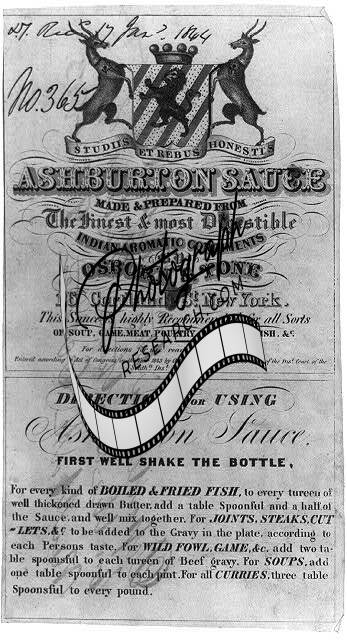 No. 365
STUDIIS ET REBUS HONESTIS
ASHBURTON SAUCE
MADE & PREPARED FROM
The Finest & most
INDIAN AROMATIC
St. New York.
This Sauce is highly for all Sorts
OF SOUP, GAME, MEAT, POULTRY FISH, &c.
For directions
Entered according Act of Congress of the Dist. Court of the
Photograph
DIRECTIONS FOR USING
Ashburton Sauce.
FIRST WELL SHAKE THE BOTTLE,
For every kind of BOILED & FRIED FISH, to every tureen of
well thickoned drawn Butter, add a table Spoonful and a half of
the Sauce, and well mix together. For JOINTS, STEAKS, CUT
LETS, &c to be added to the Gravy in the plate, according to
each Persons taste, For WILD FOWL, GAME, &c. add two ta-
ble spoonsful to each tureen of Beef gravy. For SOUPS, add
one table spoonful to each pint. For all CURRIES, three table
Spoonsful to every pound.